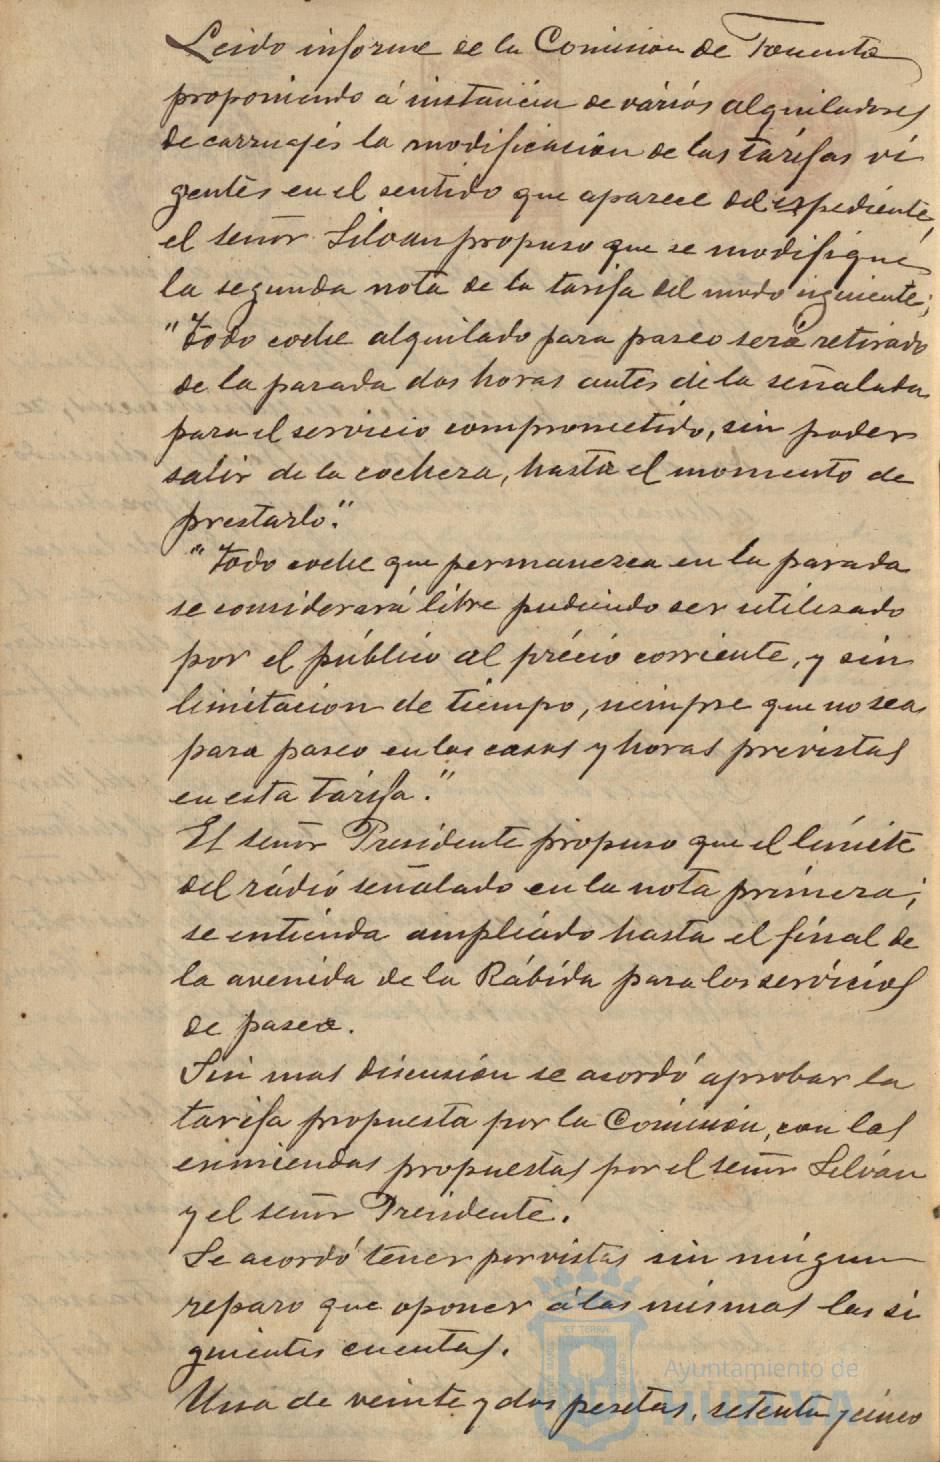 Leido informe de la Comision de Fomento
proponiendo á instancia de vários alquiladores
de carruajes la modificación de las tarifas vi
gentes en el sentido que aparece del espediente,
el señor Silvan propuso que se modifique
la segunda nota de la tarifa del modo siguiente;
"Todo coche alquilado para paseo será retirado
de la parada dos horas antes de la señalada
para el servicio comprometido, sin poder
salir de la cochera, hasta el momento de
prestarlo."
"Todo coche que permanezca en la parada
se considerará libre pudiendo ser utilizado
por el público al précio corriente, y sin
limitacion de tiempo, siempre que no sea
para paseo en los casos y horas previstas
en esta tarifa."
El señor Presidente propuso que el límite
del rádio señalado en la nota primera;
se entienda ampliado hasta el final de
la avenida de la Rábida para los servicios
de paseo.
Sin mas discusión se acordó aprobar la
tarifa propuesta por la Comisión, con las
enmiendas propuestas por el señor Silván
y el señor Presidente.
Se acordó tener por vistas sin ningun
reparo que oponer á las mismas las si
guientes cuentas.
Una de veinte y dos pesetas, setenta y cinco
ET TERRAE
Ayuntamiento de
HUELVA